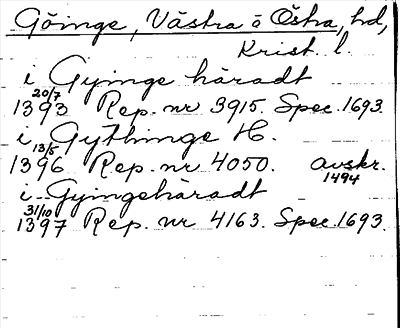 Göinge, Västra o Östra, hd,
Krist. l.
i Gyinge häradt
20/7
1393 Rep. nr 3915. Spec. 1693.
i Gythinge H.
13/5
1396 Rep. nr 4050. avskr. 1494
i Gyingehäradt
31/10
1397 Rep. nr 4163. Spec. 1693.